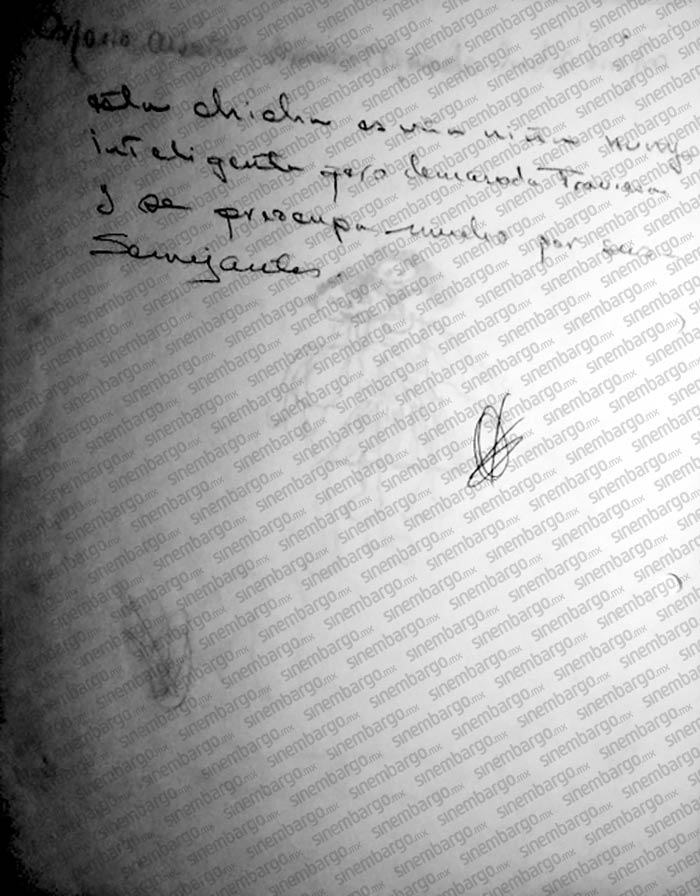 esta chicha es una niña muy
inteligente pero demasiada Traviesa
y se preocupa mucho por sus
Semejantes.
sinembargo.mx